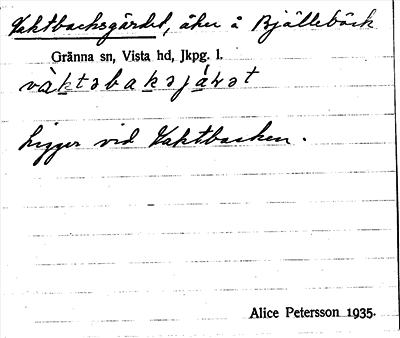 Vaktbacksgärdet, åker å Bjälleböck
Gränna sn, Vista hd, Jkpg. l.
Ligger vid Vaktbacken.
Alice Petersson 1935.